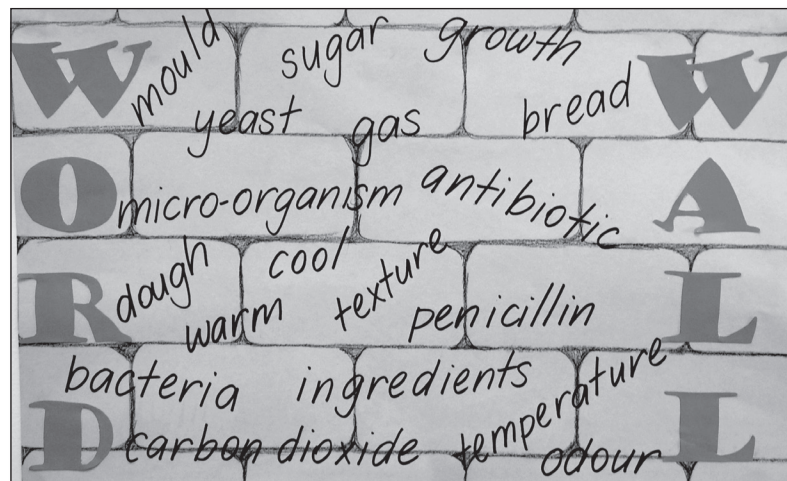 WORD
WALL
mould
sugar
growth
yeast
gas
bread
micro-organism
antibiotic
dough
cool
texture
warm
penicillin
bacteria
ingredients
temperature
carbon dioxide
odour